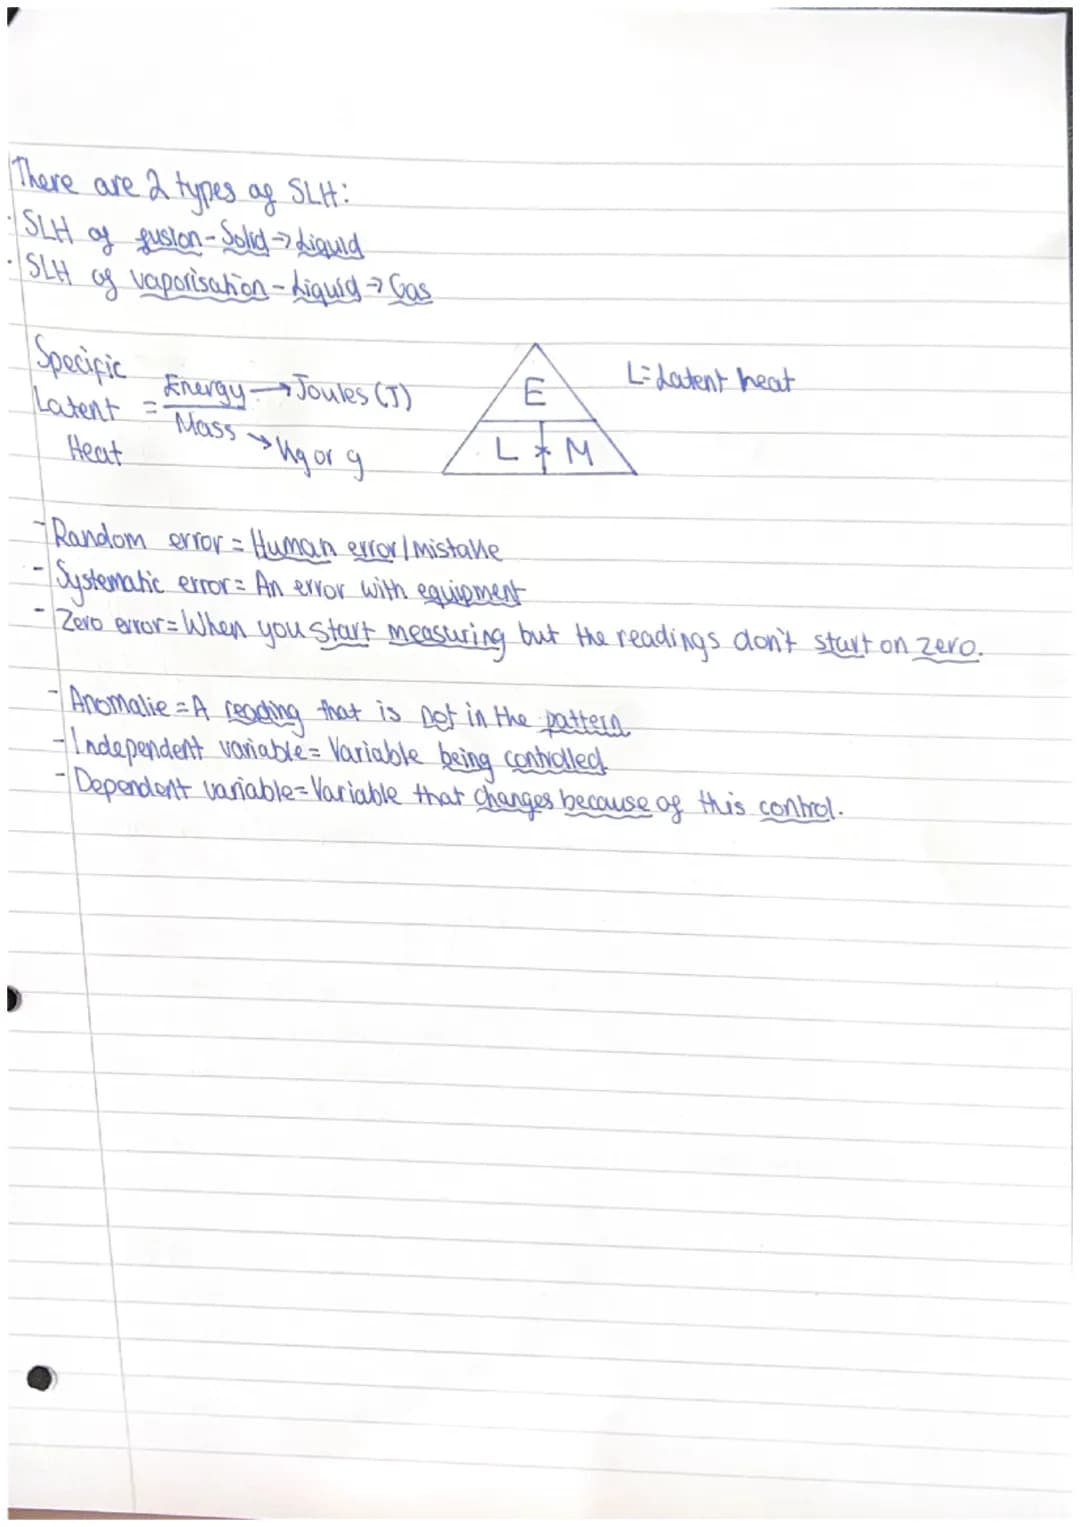 There are 2 types of SLH:
· SLH of fusion - Solid → Liquid
· SLH of vaporisation - Liquid → Gas
Specific Latent Heat = Energy → Joules (J)
Mass → Kg or g
E
L * M
L = Latent heat
- Random error = Human error/mistake
- Systematic error = An error with equipment
- Zero error = When you start measuring but the readings don't start on zero.
- Anomalie = A reading that is not in the pattern
- Independent variable = Variable being controlled
- Dependent variable = Variable that changes because of this control.